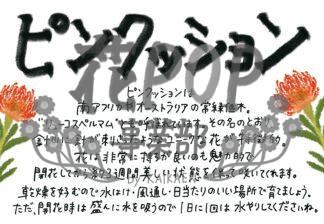 ピンクッション
ピンクッションは
南アフリカ・オーストラリアの常緑低木。
と呼ばれています。その名のとおり
針山に針が刺さったようなユニークな花が特徴的。
花は非常に持ちが良いのも魅力的で
開花してから約3週間美しい状態を保って咲いてくれます。
乾燥を好むので水はけ・風通し・日当たりのいい場所で育てましょう。
ただ、開花時は盛んに水を吸うので1日に1回は水やりしてくださいね。
花POP